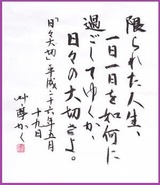 限られた人生、
一日一日を如何に
過ごしてゆくか、
日々の大切さよ。
「日々大切」平成二十六年五月
十九日